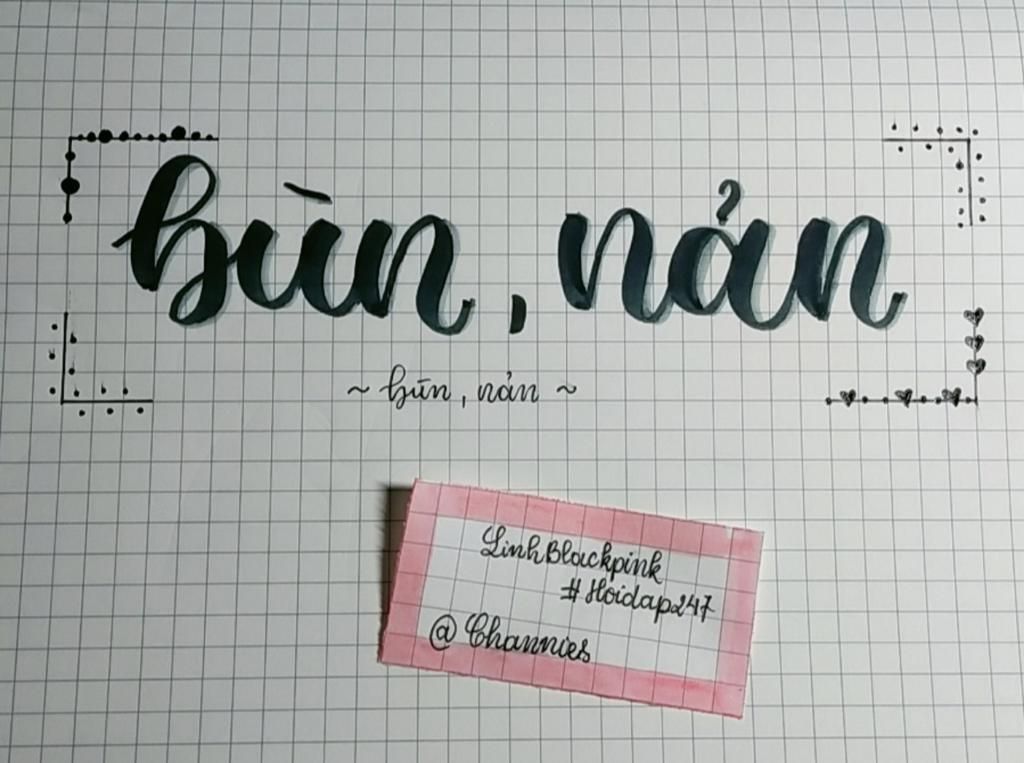 bùn, nản
~ bùn, nản ~
LinhBlackpink
#Hoidap247
@Channies